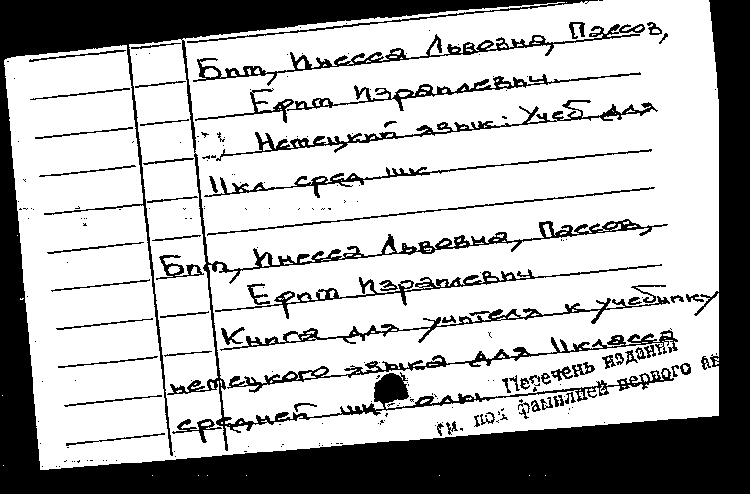 Бим, Инесса Львовна, Пассов,
Ефим Израилевич.
Немецкий язык: Учеб. для
11кл. сред. шк.
Бим, Инесса Львовна, Пассов,
Ефим Израилевич
Книга для учителя к учебнику
немецкого языка для 11класса
средней школы.
Перечень изданий
см. под фамилией первого ав